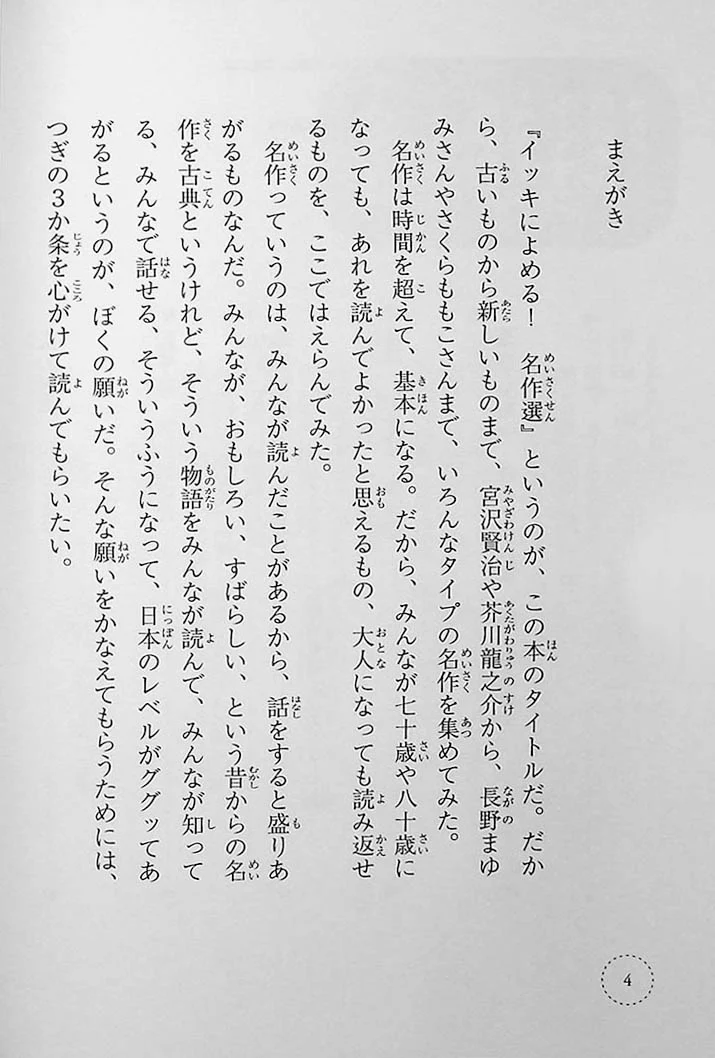 まえがき
『イッキによめる！　名作選』というのが、この本のタイトルだ。だか
ら、古いものから新しいものまで、宮沢賢治や芥川龍之介から、長野まゆ
みさんやさくらももこさんまで、いろんなタイプの名作を集めてみた。
名作は時間を超えて、基本になる。だから、みんなが七十歳や八十歳に
なっても、あれを読んでよかったと思えるもの、大人になっても読み返せ
るものを、ここではえらんでみた。
名作っていうのは、みんなが読んだことがあるから、話をすると盛りあ
がるものなんだ。みんなが、おもしろい、すばらしい、という昔からの名
作を古典というけれど、そういう物語をみんなが読んで、みんなが知って
る、みんなで話せる、そういうふうになって、日本のレベルがググッてあ
がるというのが、ぼくの願いだ。そんな願いをかなえてもらうためには、
つぎの３か条を心がけて読んでもらいたい。
4